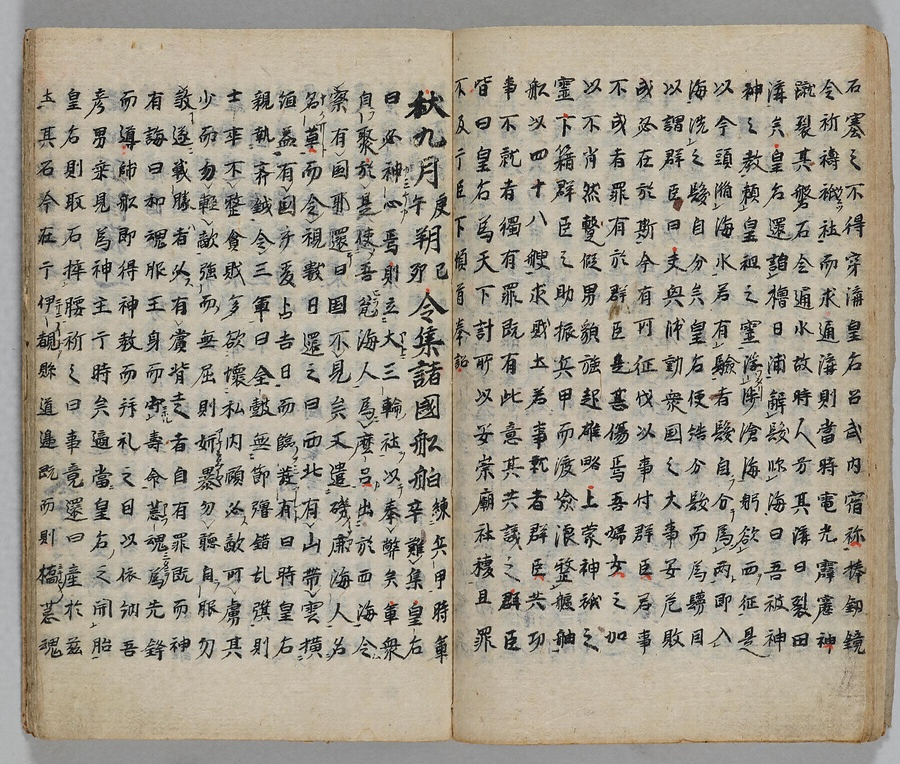 石塞之不得穿溝皇后召武内宿祢捧釼鏡
令祈禱祇社而求通溝則當時電光霹靂神
蹴裂其磐石令通水故時人号其溝曰裂田
溝矣皇后還詣橿日浦解髪臨海曰吾被神
神之教頼皇祖之霊浮渉滄海躬欲西征是
以今頭滌海水若有驗者髪自分為両即入
海洗之髪自分矣皇后便结分髪而為髻目
以謂群臣曰夫興師動衆国之大事安危敗
或必在於斯今有可征伐以事付群臣若事
不或者罪有於群臣是甚傷焉吾婦女之加
以不肖然蹔假男貌強起雄略上蒙神祇之
霊下籍群臣之助振兵甲而渡嶮浪整艫舳
舩以四十八艘求賊土若事就者群臣共功
事不就者獨有罪既有此意其共議之群臣
皆曰皇后為天下計所以安崇廟社稷且罪
不及于臣下傾首奉詔
秋九月庚午朔己卯令集諸國舩舶練兵甲時軍卒難集皇后
曰必神心焉則立大三輪社以奉幣矣軍衆
自聚於是使吾瓮海人烏麼呂出於西海令
察有国耶還曰国不見矣又遣磯鹿海人名
名草而令視數日還之曰西北有山帶雲横
絙盖有國乎爰占吉日而臨發有日時皇后
親執斧鉞令三軍曰金皷無節錯乱旗則
士卒不整貪賊多欲懷私内顧必敵可虜其
少而勿輕敵強而無屈則姧暴勿聽自服勿
敦遂戦勝者必有賞背走者自有罪既而神
有誨曰和魂服王身而守壽命荒魂為先鋒
而導師舩即得神教而拜礼之曰以依網吾
彦男乗見為神主于時矣適當皇后之開胎
皇后則取石揷腰祈之曰事竟還曰産於茲
土其石今在于伊覩縣道邊既而則撝荒魂